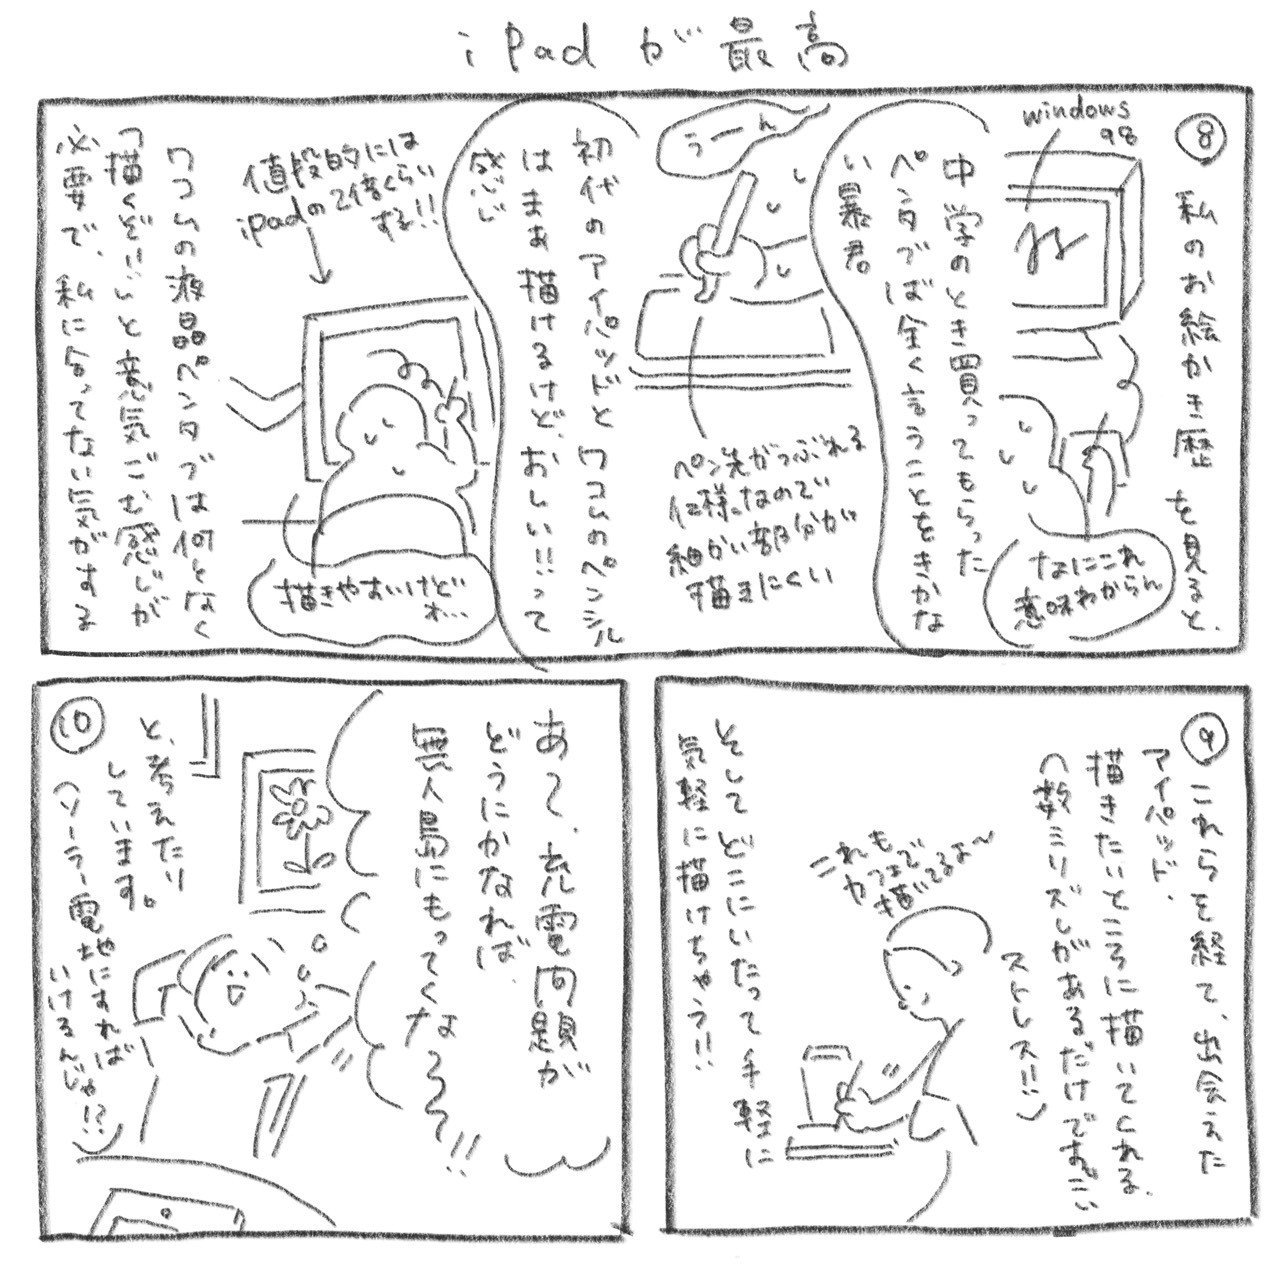 iPadが最高
⑧
私のお絵かき歴を見ると、
windows
98
なにこれ
意味わからん
中学のとき買ってもらった
ペンタブは全く言うことをきかな
い暴君。
うーん
ペン先がつぶれる
仕様なので
細かい部分が
描きにくい
初代のアイパッドとワコムのペンシル
はまあ描けるけど、おしい!!って
感じ
値段的には
iPadの2倍くらい
する!!
描きやすいけど
ォ…
ワコムの液晶ペンタブは何となく
「描くぞ!!」と意気ごむ感じが
必要で、私に合ってない気がする
⑨
これらを経て、出会えた
アイパッド、
描きたいところに描いてくれる、
(数ミリズレがあるだけですごい
ストレス!!)
これも
カフェで
描いてるよ〜
そしてどこにいたって手軽に
気軽に描けちゃう!!
あぁ、充電問題が
どうにかなれば、
無人島にもってくなろ〜〜!!
⑩
と、考えたり
しています。
(ソーラー電池にすれば
いけるんじゃ!?)